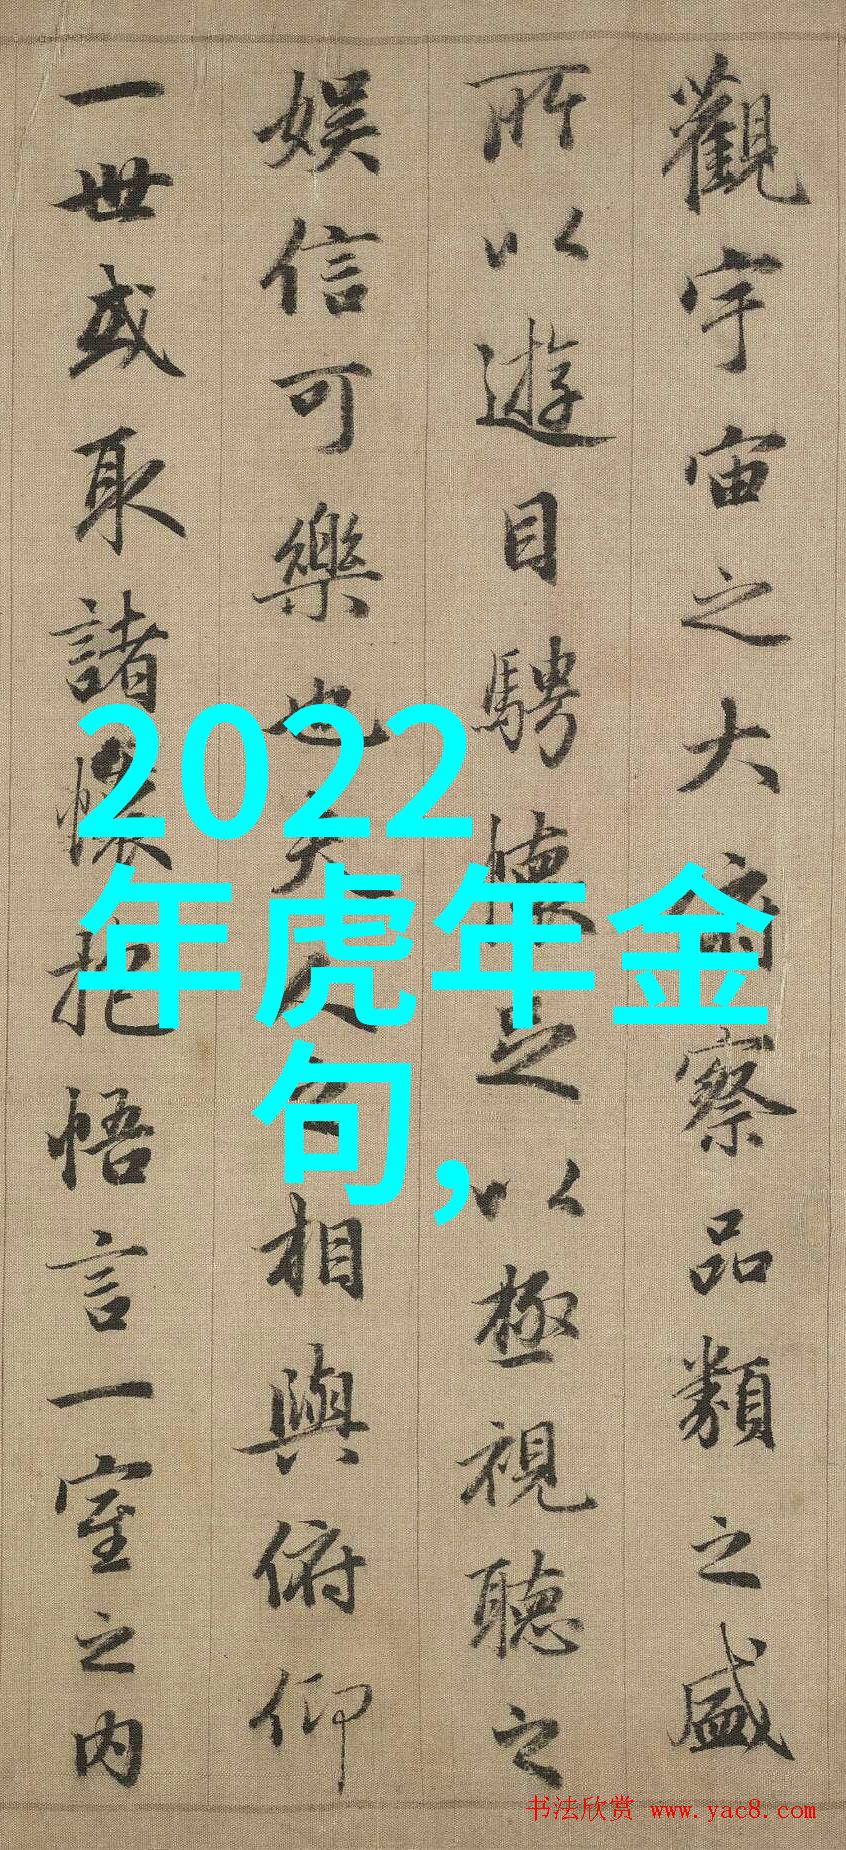 觀宇宙之大俯察品類之盛
所以遊目騁懷足以極視聽之
娛信可樂也夫人之相與俯仰
一世或取諸懷抱悟言一室之內
2022
年虎年金
句,
书法欣赏 www.yac8.com